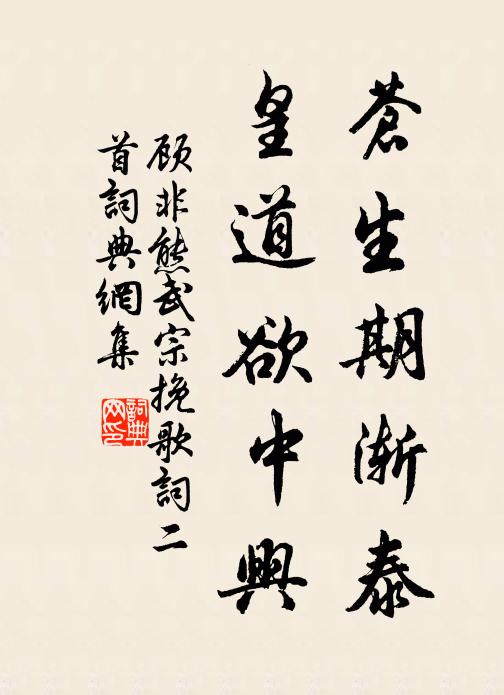 蒼生期漸泰
皇道欲中興
顾非熊武宗挽歌詞二
首詞典網集
詞典网印